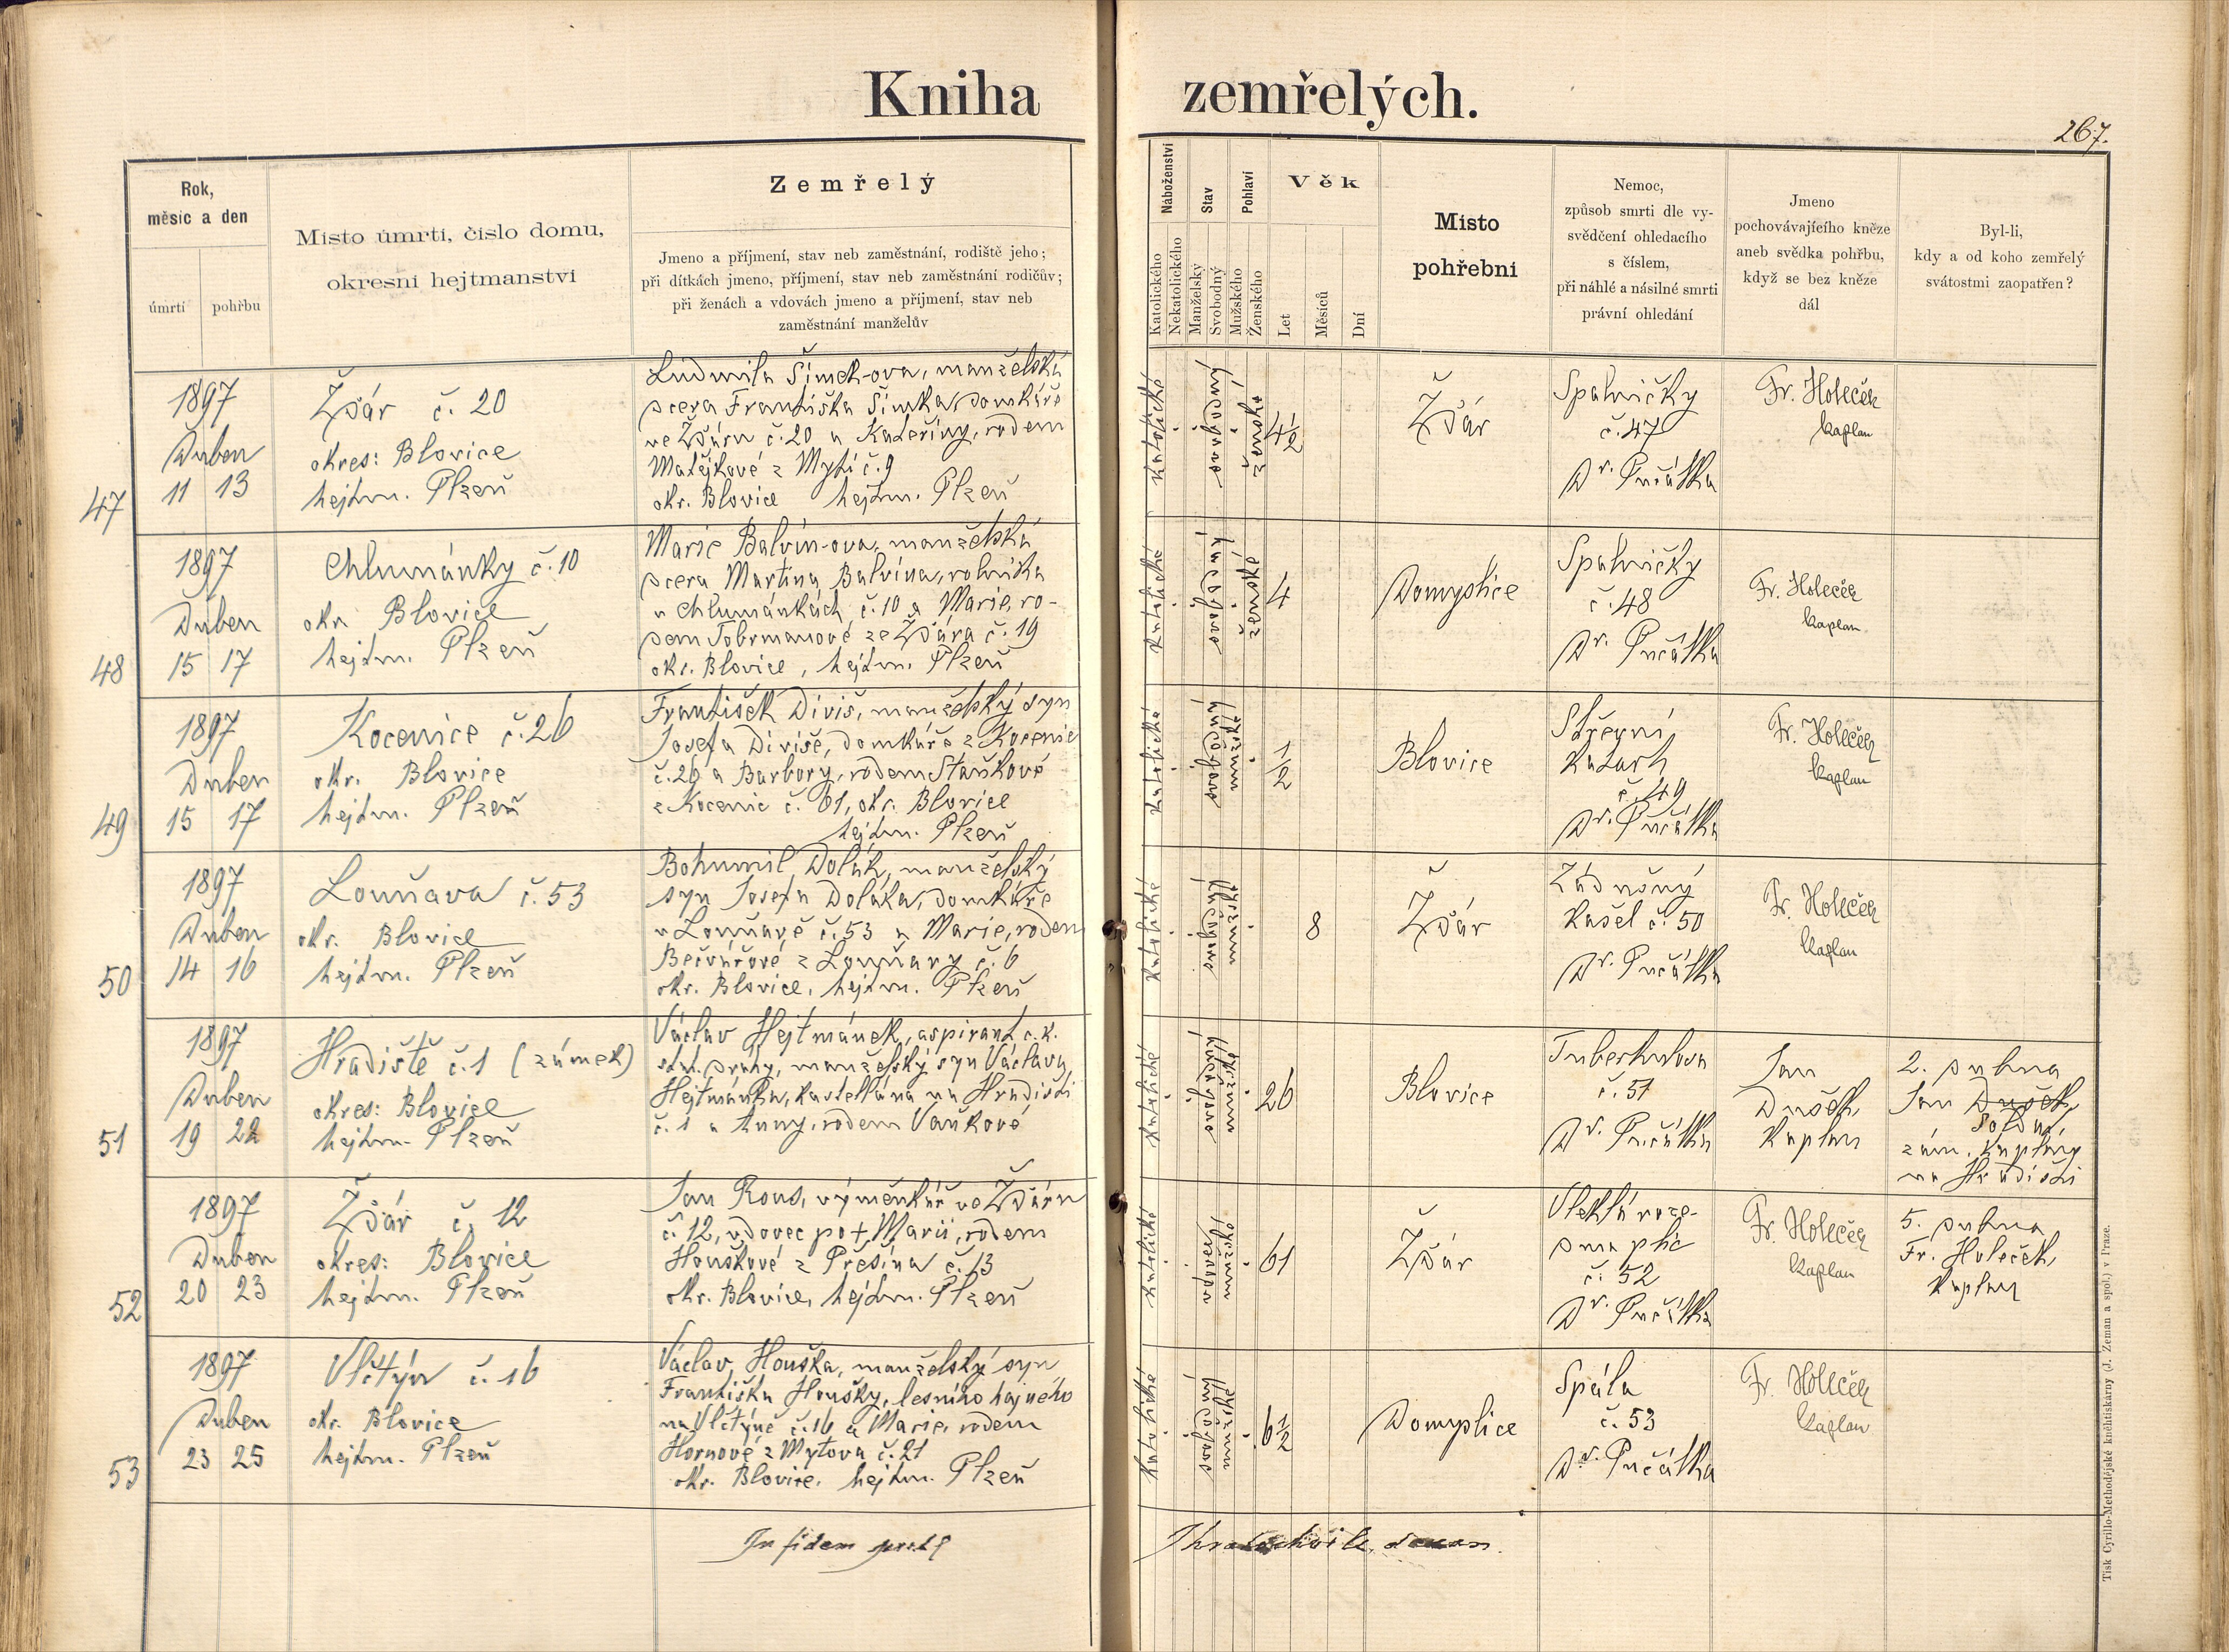 Kniha zemřelých.
267.
Rok,
měsíc a den
úmrtí pohřbu
Místo úmrtí, číslo domu,
okresní hejtmanství
Zemřelý
Jmeno a příjmení, stav neb zaměstnání, rodiště jeho;
při dítkách jmeno, příjmení, stav neb zaměstnání rodičův;
při ženách a vdovách jmeno a příjmení, stav neb
zaměstnání manželův
Náboženství
Katolického
Nekatolického
Stav
Manželský
Svobodný
Pohlaví
Mužského
Ženského
Věk
Let
Měsíců
Dní
Místo
pohřební
Nemoc,
způsob smrti dle vy-
svědčení ohledacího
s číslem,
při náhlé a násilné smrti
právní ohledání
Jmeno
pochovávajícího kněze
aneb svědka pohřbu,
když se bez kněze
dál
Byl-li,
kdy a od koho zemřelý
svátostmi zaopatřen?
47
1897
Duben
11 13
Žďár č. 20
okres: Blovice
hejtm. Plzeň
Ludmila Šimek-ova, manželská
dcera Františka Šimka, domkáře
ve Žďáru č. 20 a Kateřiny, rodem
Matějkové z Mytí č. 9
okr. Blovice hejtm. Plzeň
katolické
svobodný
ženské
4 1/2
Žďár
Spalničky
č. 47
Dr. Pučálka
Fr. Holeček
kaplan
48
1897
Duben
15 17
Chlumánky č. 10
okr. Blovice
hejtm. Plzeň
Marie Balvín-ova, manželská
dcera Martina Balvína, rolníka
v Chlumánkách č. 10 a Marie, ro-
dem Tobrmanové ze Žďára č. 19
okr. Blovice, hejtm. Plzeň
katolické
svobodný
ženské
4
Domyslice
Spalničky
č. 48
Dr. Pučálka
Fr. Holeček
kaplan
49
1897
Duben
15 17
Kocenice č. 26
okr. Blovice
hejtm. Plzeň
František Diviš, manželský syn
Josefa Diviše, domkáře z Kocenic
č. 26 a Barbory, rodem Staňkové
z Kocenic č. 61, okr. Blovice
hejtm. Plzeň
katolické
svobodný
mužské
1/2
Blovice
Střevní
katarh
č. 49
Dr. Pučálka
Fr. Holeček
kaplan
50
1897
Duben
14 16
Louňava č. 53
okr. Blovice
hejtm. Plzeň
Bohumil Dolák, manželský
syn Josefa Doláka, domkáře
v Louňavě č. 53 a Marie, rodem
Bečvářové z Louňavy č. 6
okr. Blovice, hejtm. Plzeň
katolické
svobodný
mužské
8
Žďár
Zádušný
kašel č. 50
Dr. Pučálka
Fr. Holeček
kaplan
51
1897
Duben
19 22
Hradiště č. 1 (zámek)
okres: Blovice
hejtm. Plzeň
Václav Hejtmánek, aspirant c. k.
stát. dráhy, manželský syn Václava
Hejtmánka, kastellána na Hradišti
č. 1 a Anny, rodem Vaňkové
katolické
svobodný
mužské
26
Blovice
Tuberkulosa
č. 51
Dr. Pučálka
Jan
Dušek,
kaplan
2. dubna
Jan Dušek,
zám. kaplan
na Hradišti
52
1897
Duben
20 23
Žďár č. 12
okres: Blovice
hejtm. Plzeň
Jan Rous, výměnkář ve Žďáru
č. 12, vdovec po † Marii, rodem
Houškové z Přešína č. 13
okr. Blovice, hejtm. Plzeň
katolické
vdovec
mužské
61
Žďár
Vleklá roze-
dma plic
č. 52
Dr. Pučálka
Fr. Holeček
kaplan
5. dubna
Fr. Holeček,
kaplan
53
1897
Duben
23 25
Vlčtýn č. 16
okr. Blovice
hejtm. Plzeň
Václav Houška, manželský syn
Františka Houšky, lesního hajného
na Vlčtýně č. 16 a Marie, rodem
Hornové z Mytova č. 21
okr. Blovice, hejtm. Plzeň
katolické
svobodný
mužské
6 1/2
Domyslice
Spála
č. 53
Dr. Pučálka
Fr. Holeček
kaplan
In fidem
děkan
Tisk Cyrillo-Methodějské kněhtiskárny (J. Zeman a spol.) v Praze.